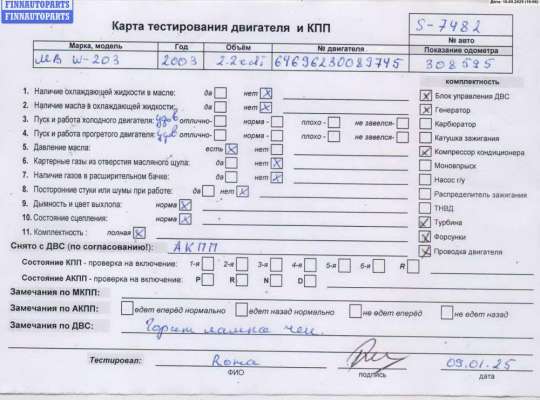 FINNAUTOPARTS
FINNAUTOPARTS
Дата: 10.09.2025 (19:06)
Карта тестирования двигателя и КПП
S-7482
№ авто
Марка, модель Год Объём № двигателя Показание одометра
MB W-203 2003 2.2 cdi 64696230089745 308595
комплектность
1. Наличие охлаждающей жидкости в масле: да нет
2. Наличие масла в охлаждающей жидкости: да нет
3. Пуск и работа холодного двигателя: удов отлично- норма - плохо - не завелся-
4. Пуск и работа прогретого двигателя: удов отлично- норма - плохо - не завелся-
5. Давление масла: есть нет
6. Картерные газы из отверстия масляного щупа: да нет
7. Наличие газов в расширительном бачке: да нет
8. Посторонние стуки или шумы при работе: да нет
9. Дымность и цвет выхлопа: норма
10. Состояние сцепления: норма
11. Комплектность : полная
Блок управления ДВС
Генератор
Карбюратор
Катушка зажигания
Компрессор кондиционера
Моновпрыск
Насос г/у
Распределитель зажигания
ТНВД
Турбина
Форсунки
Проводка двигателя
Снято с ДВС (по согласованию!): АКПП
Состояние КПП - проверка на включение: 1-я 2-я 3-я 4-я 5-я 6-я R
Состояние АКПП - проверка на включение: P R N D
Замечания по МКПП:
Замечания по АКПП: едет вперёд нормально едет назад нормально не едет вперёд не едет назад
Замечания по ДВС: Горит лампа чек.
Тестировал: Roma 09.01.25
ФИО подпись дата